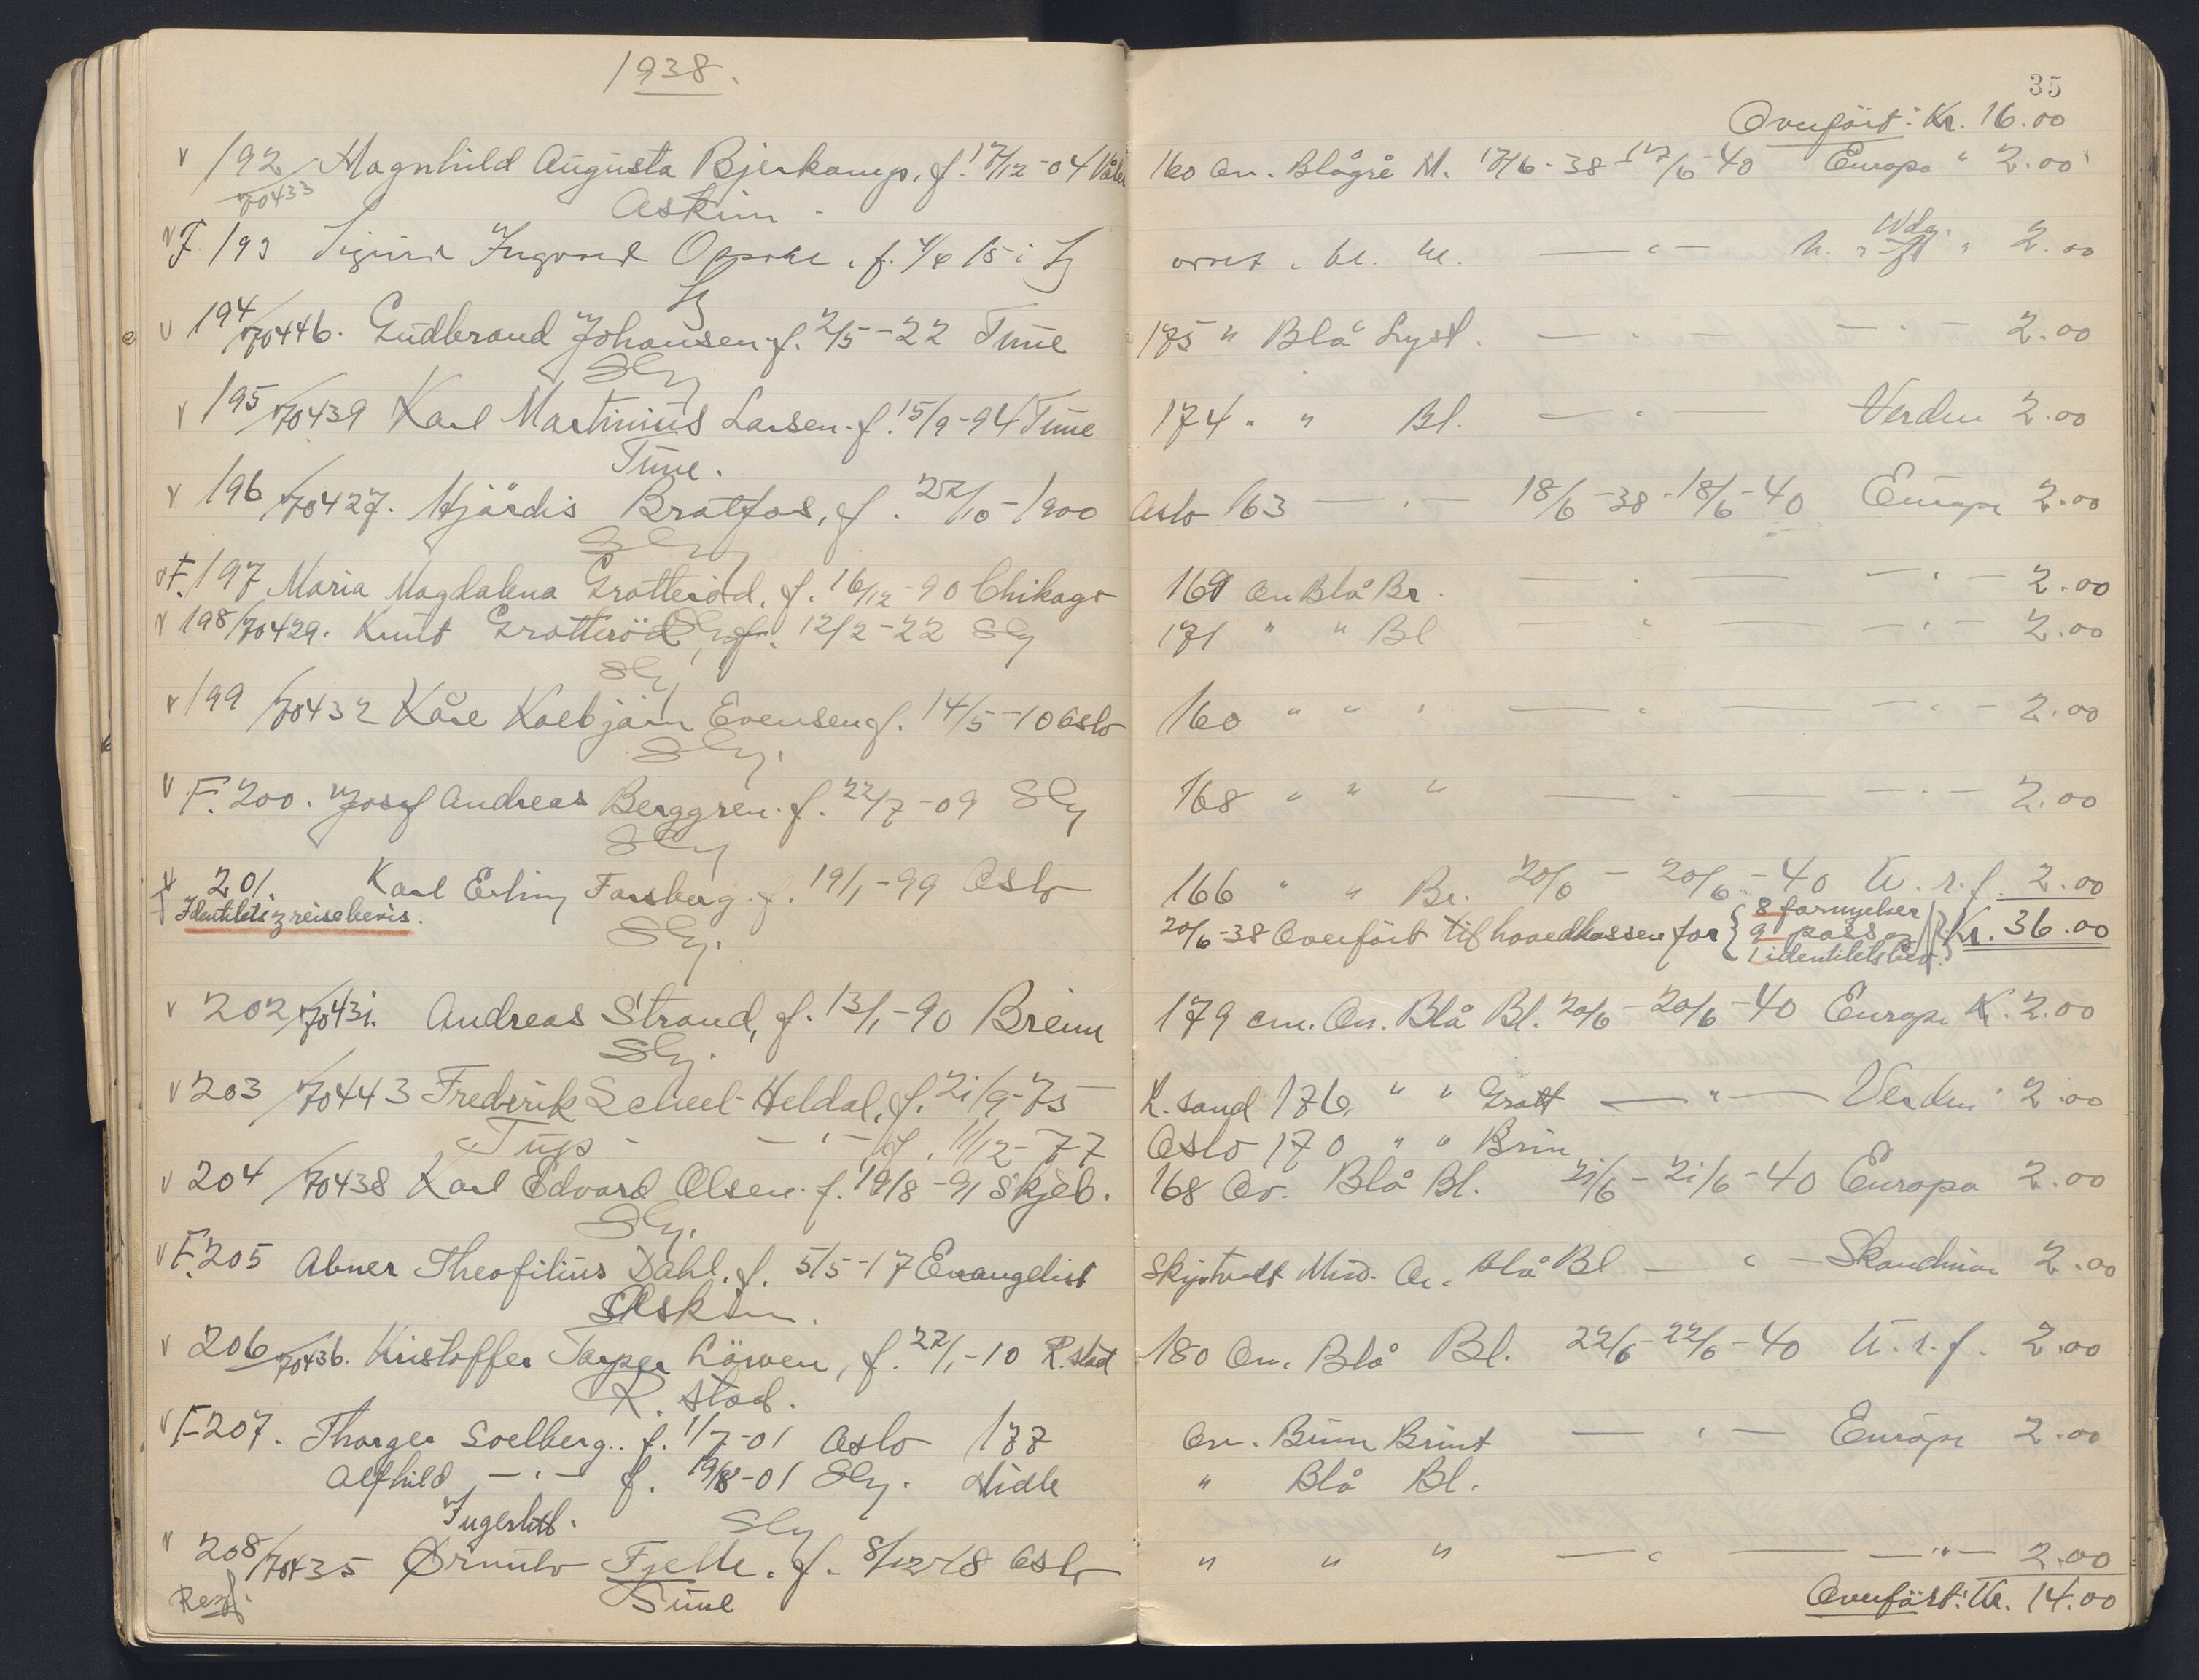 1938.
35
Overført: Kr. 16.00
v 192 Magnhild Augusta Bjerkamp, f. 17/12-04 Våler 160 On. Blågrå M. 17/6-38-17/6-40 Europa " 2.00
70433 Askim.
v F. 193 Sigurd Ingvard f. 4/6 15 i Sg ovret. bl. M. — " — 2.00
Sg
v 194/70446. Gudbrand Johansen. f. 2/5-22 Tune 175 " Blå Lyst. — " — — " — 2.00
Slg
v 195/70439 Karl Martinius Larsen. f. 15/9-94 Tune 174 " " Bl. — " — Verden 2.00
Tune.
v 196/70427. Hjördis Bratfos, f. 22/10-1900 Oslo 163 — " — 18/6-38-18/6-40 Europa 2.00
Slg
v F. 197 Maria Magdalena Grotteröd, f. 16/12-90 Chikago 169 On Blå Br. — " — — " — 2.00
v 198/70429. Knut Grotteröd, f. 12/2-22 Slg 171 " " Bl — " — — " — 2.00
Slg
v 199/70432 Kåre Kolbjörn Evensen f. 14/5-10 Oslo 160 " " " — " — — " — 2.00
Slg.
v F. 200. Josef Andreas Berggren. f. 22/7-09 Slg 168 " " " — " — — " — 2.00
Slg
v 201. Karl Erling Forsberg. f. 19/1-99 Oslo 166 " " Br. 20/6 - 20/6-40 U.r.f. 2.00
Identitets reisebevis. Slg.
20/6-38 Overfört til hovedkassen for { 8 fornyelser 9 pass 1 identitetsbev. } Kr. 36.00
v 202/70431. Andreas Strand, f. 13/1-90 Breim 179 cm. On. Blå Bl. 20/6-20/6-40 Europa K. 2.00
Slg.
v 203/70443 Frederik Scheel Heldal, f. 21/9-75 K.sand 176, " " Grått — " — Verden " 2.00
— " — f. 11/12-77 Oslo 170 " " Brun
v 204/70438 Karl Edvard Olsen. f. 19/8-91 Skjeb. 168 Ov. Blå Bl. 21/6-21/6-40 Europa 2.00
Slg.
v F. 205 Abner Theofilius Dahl. f. 5/5-17 Evangelist Skiptvedt Mid. On. blå Bl — " — Skandinav 2.00
Askim.
v 206/70436. Kristoffer Jasper Löwen, f. 22/1-10 R.stad 180 On. Blå Bl. 22/6-22/6-40 U.r.f. 2.00
R. stad.
v F 207. Thorger Soelberg.. f. 1/7-01 Oslo 177 On. Brun Brunt — " — Europa 2.00
Alfhild — " — f. 19/8-01 Slg. Midle " Blå Bl.
Slg
v 208/70435 Ørnulv Fjelle. f. 8/12-18 Oslo " " " — " — — " — 2.00
Tune
Overfört: Kr. 14.00